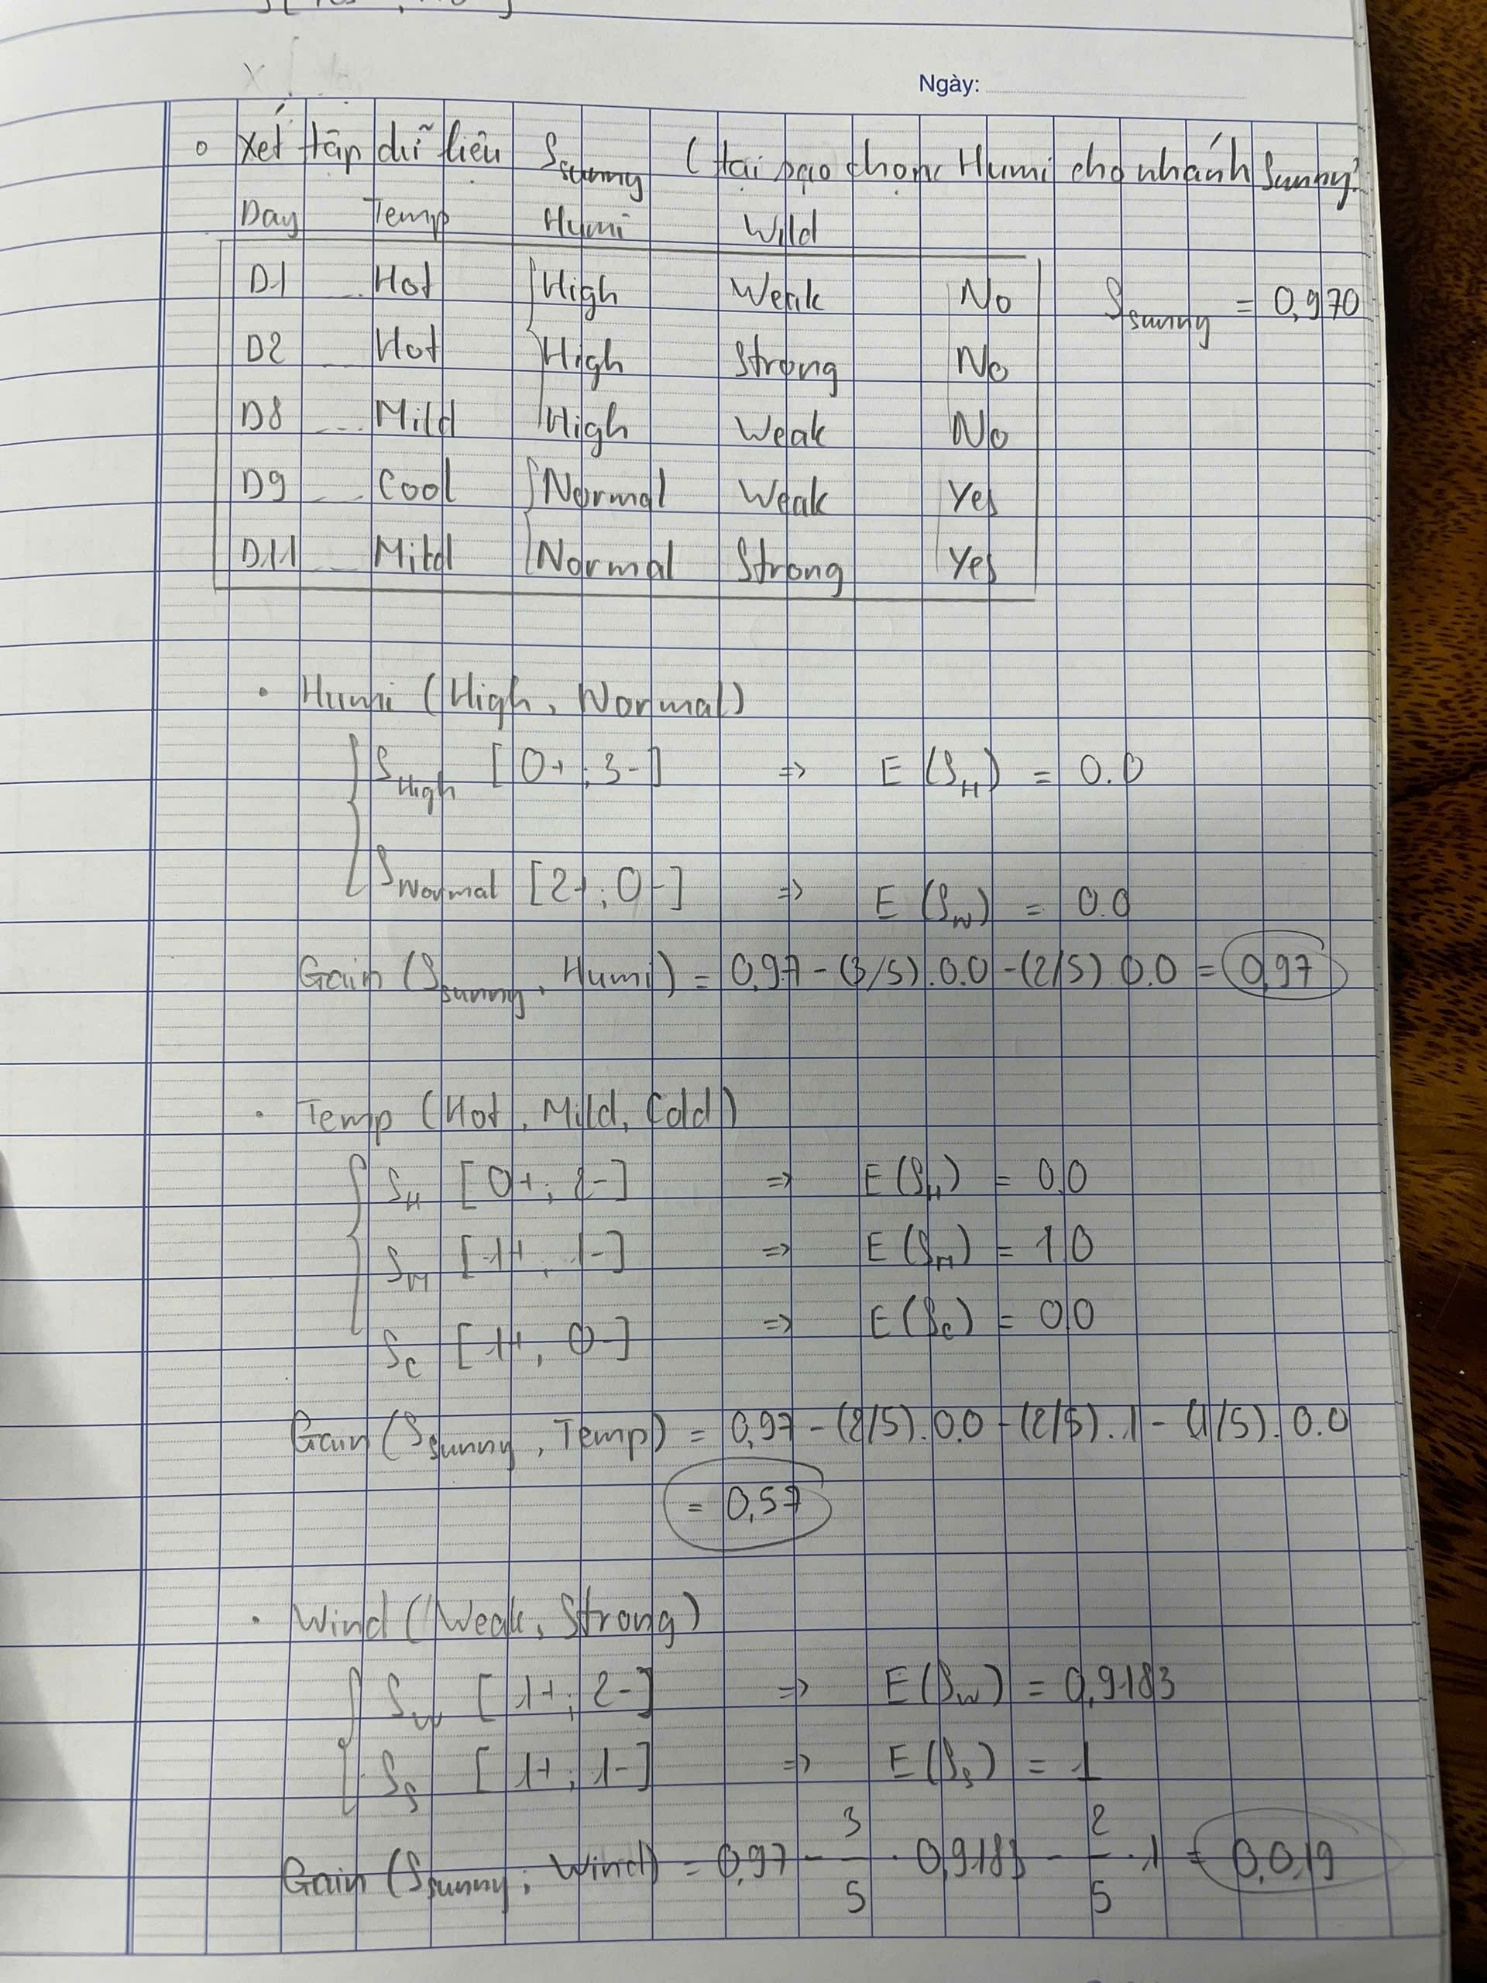 Ngày:
o Xét tập dữ liệu S_sunny (tại sao chọn Humi cho nhánh Sunny?
Day Temp Humi Wild
D1 Hot High Weak No S_sunny = 0,970
D2 Hot High Strong No
D8 Mild High Weak No
D9 Cool Normal Weak Yes
D11 Mild Normal Strong Yes
• Humi (High, Normal)
S_High [0+; 3-] => E(S_H) = 0.0
S_Normal [2+; 0-] => E(S_N) = 0.0
Gain (S_sunny, Humi) = 0,97 - (3/5).0.0 - (2/5) 0.0 = 0,97
• Temp (Hot, Mild, Cold)
S_H [0+; 2-] => E(S_H) = 0,0
S_M [1+, 1-] => E(S_M) = 1,0
S_C [1+, 0-] => E(S_C) = 0,0
Gain (S_sunny, Temp) = 0,97 - (2/5).0.0 - (2/5).1 - (1/5).0.0
= 0,57
• Wind (Weak, Strong)
S_W [1+; 2-] => E(S_W) = 0,9183
S_S [1+; 1-] => E(S_S) = 1
Gain (S_sunny; Wind) = 0,97 - 3/5 . 0,9183 - 2/5 . 1 = 0,019